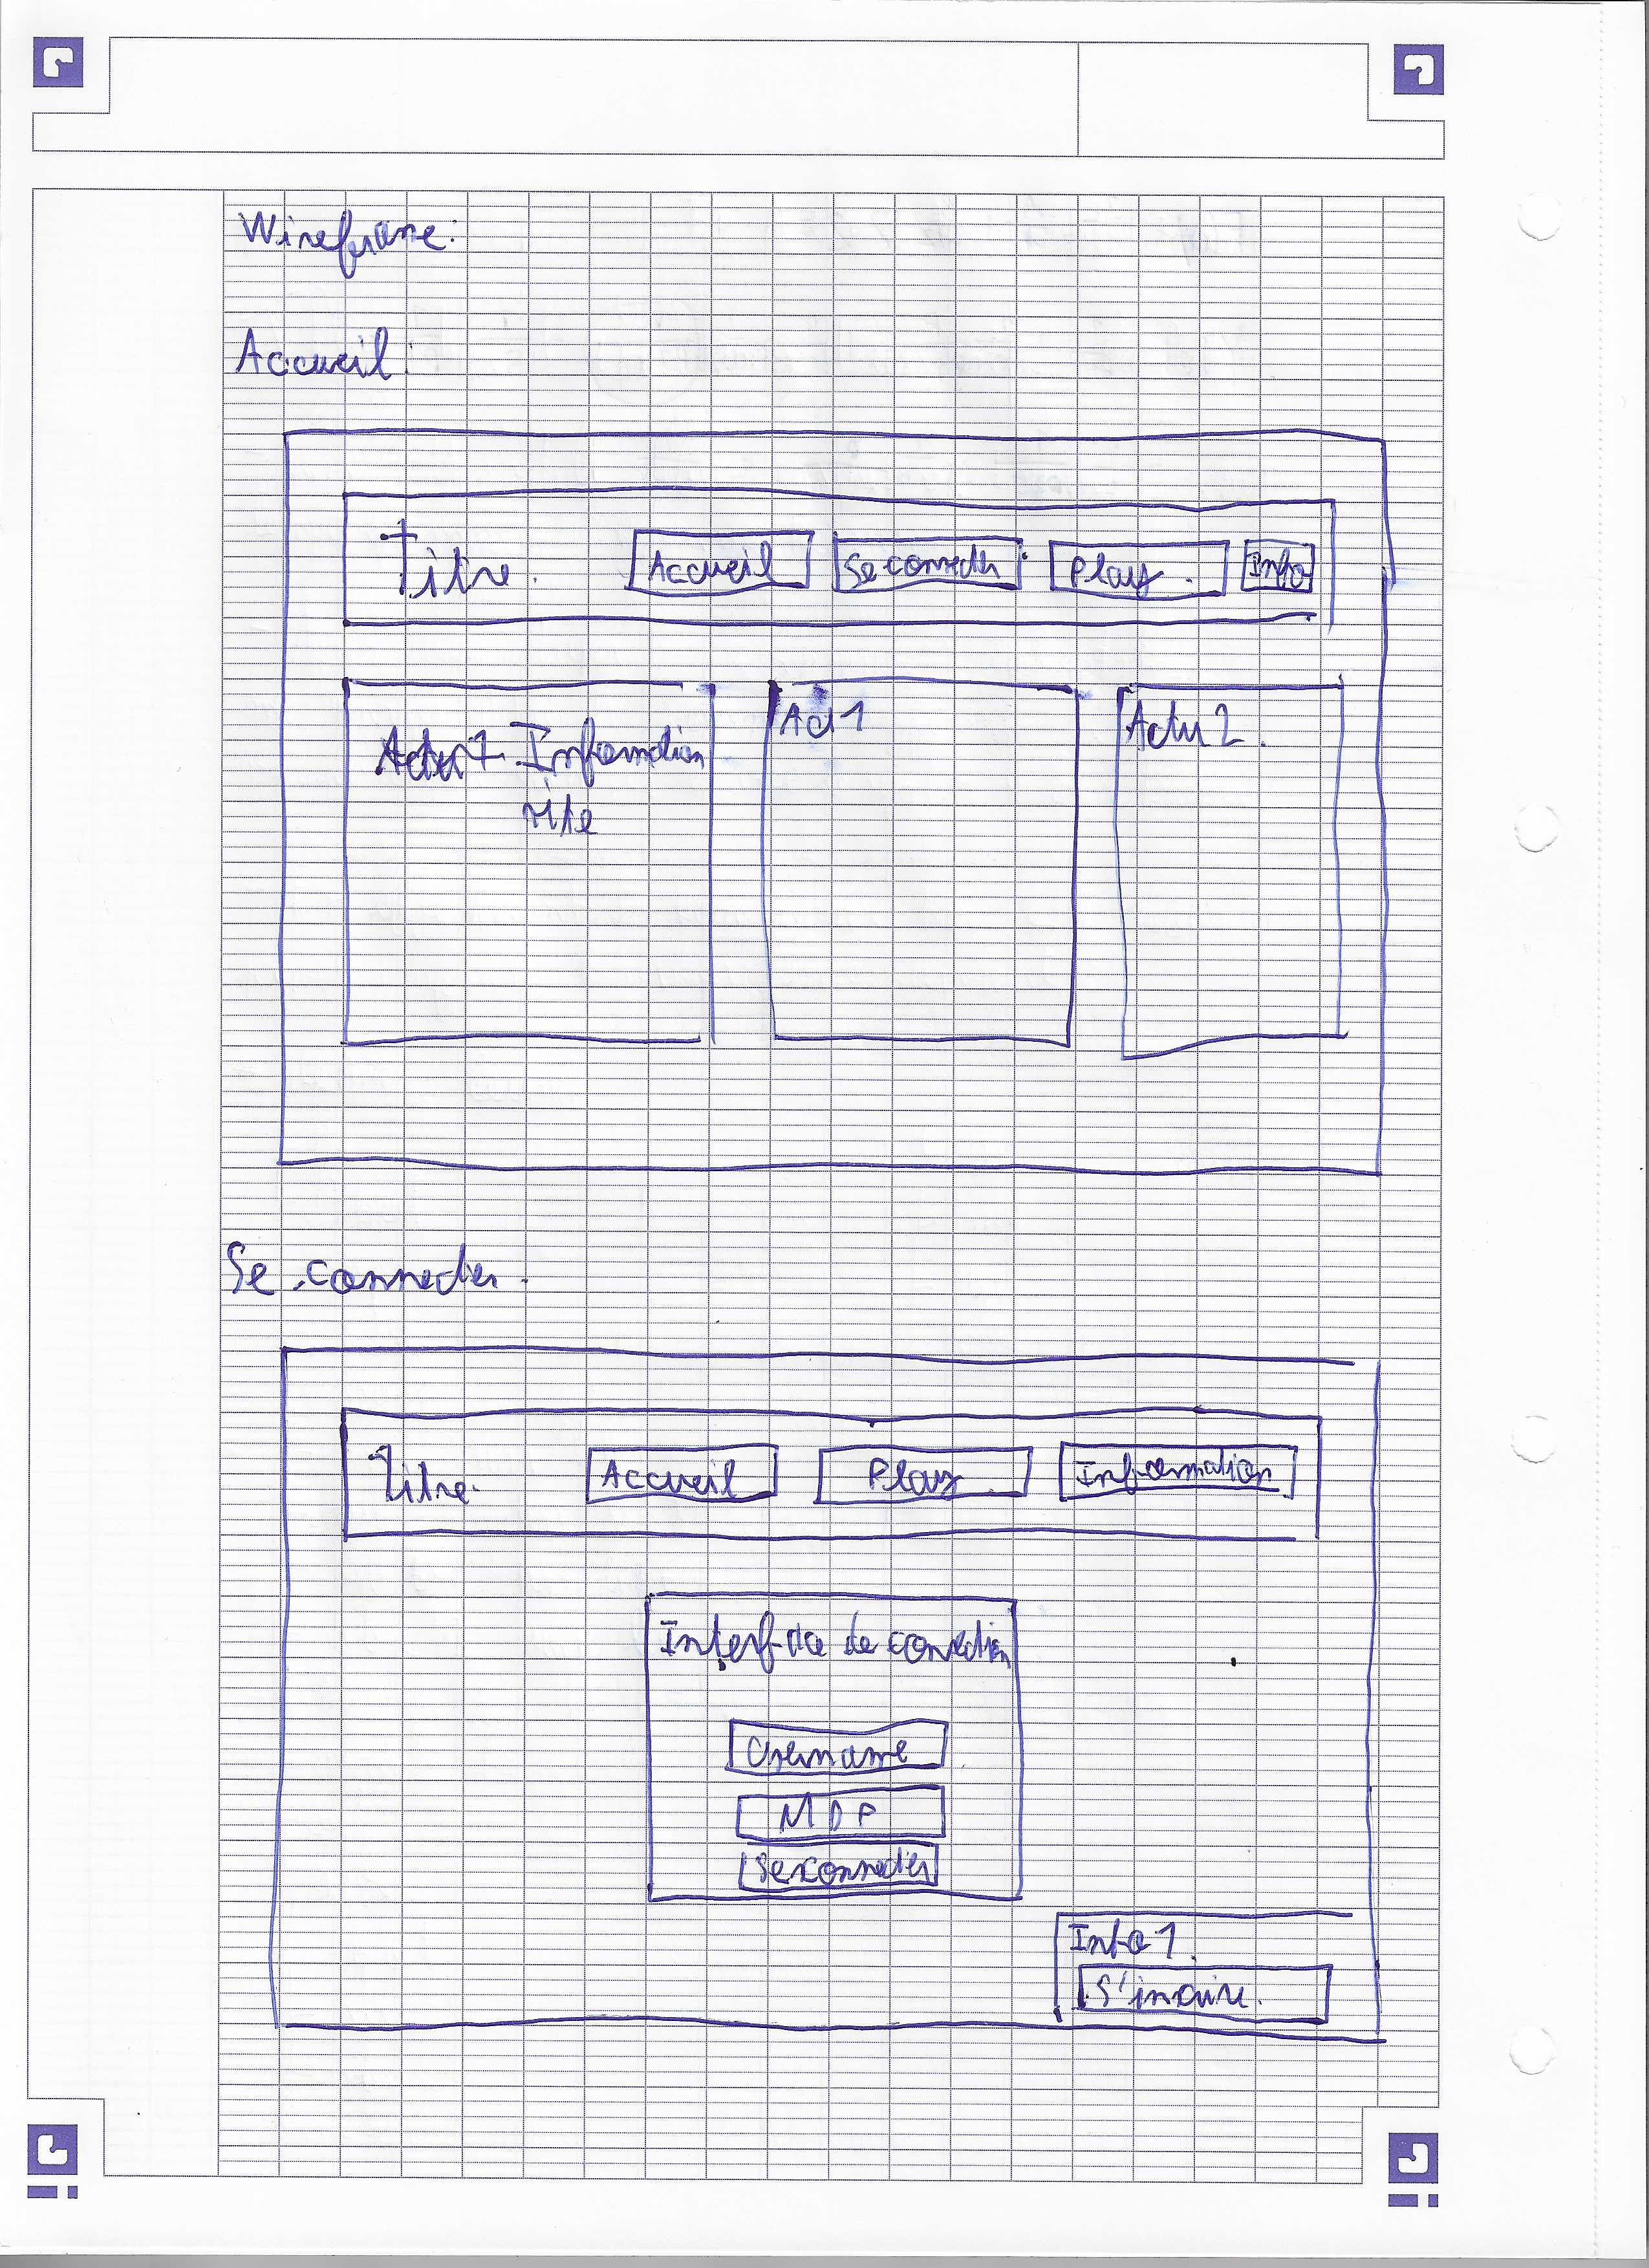 Wireframe:
Accueil:
Titre.
Accueil
Se connecter
Play.
Info
Information
site
Act 1
Actu 2.
Se connecter.
Titre.
Accueil
Play
Information
Interface de connection
Username
MDP
Se connecter
Info 1.
S'inscrire.